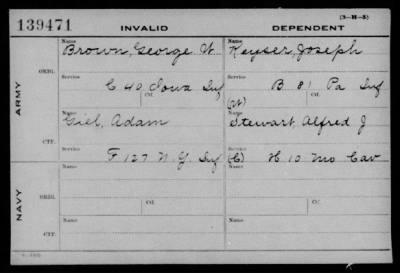 (3-H-5)
139471 INVALID DEPENDENT
ARMY
ORIG.
Name Brown, George W. Name Keyser, Joseph
Service C 40 Iowa Inf Service B 81 Pa Inf
Of. Of. (W)
CTF.
Name Giel, Adam Name Stewart, Alfred J
Service F 127 N.Y. Inf Service (C) H 10 Mo Cav
NAVY
ORIG.
Name Name
Of. Of.
CTF.
Name Name